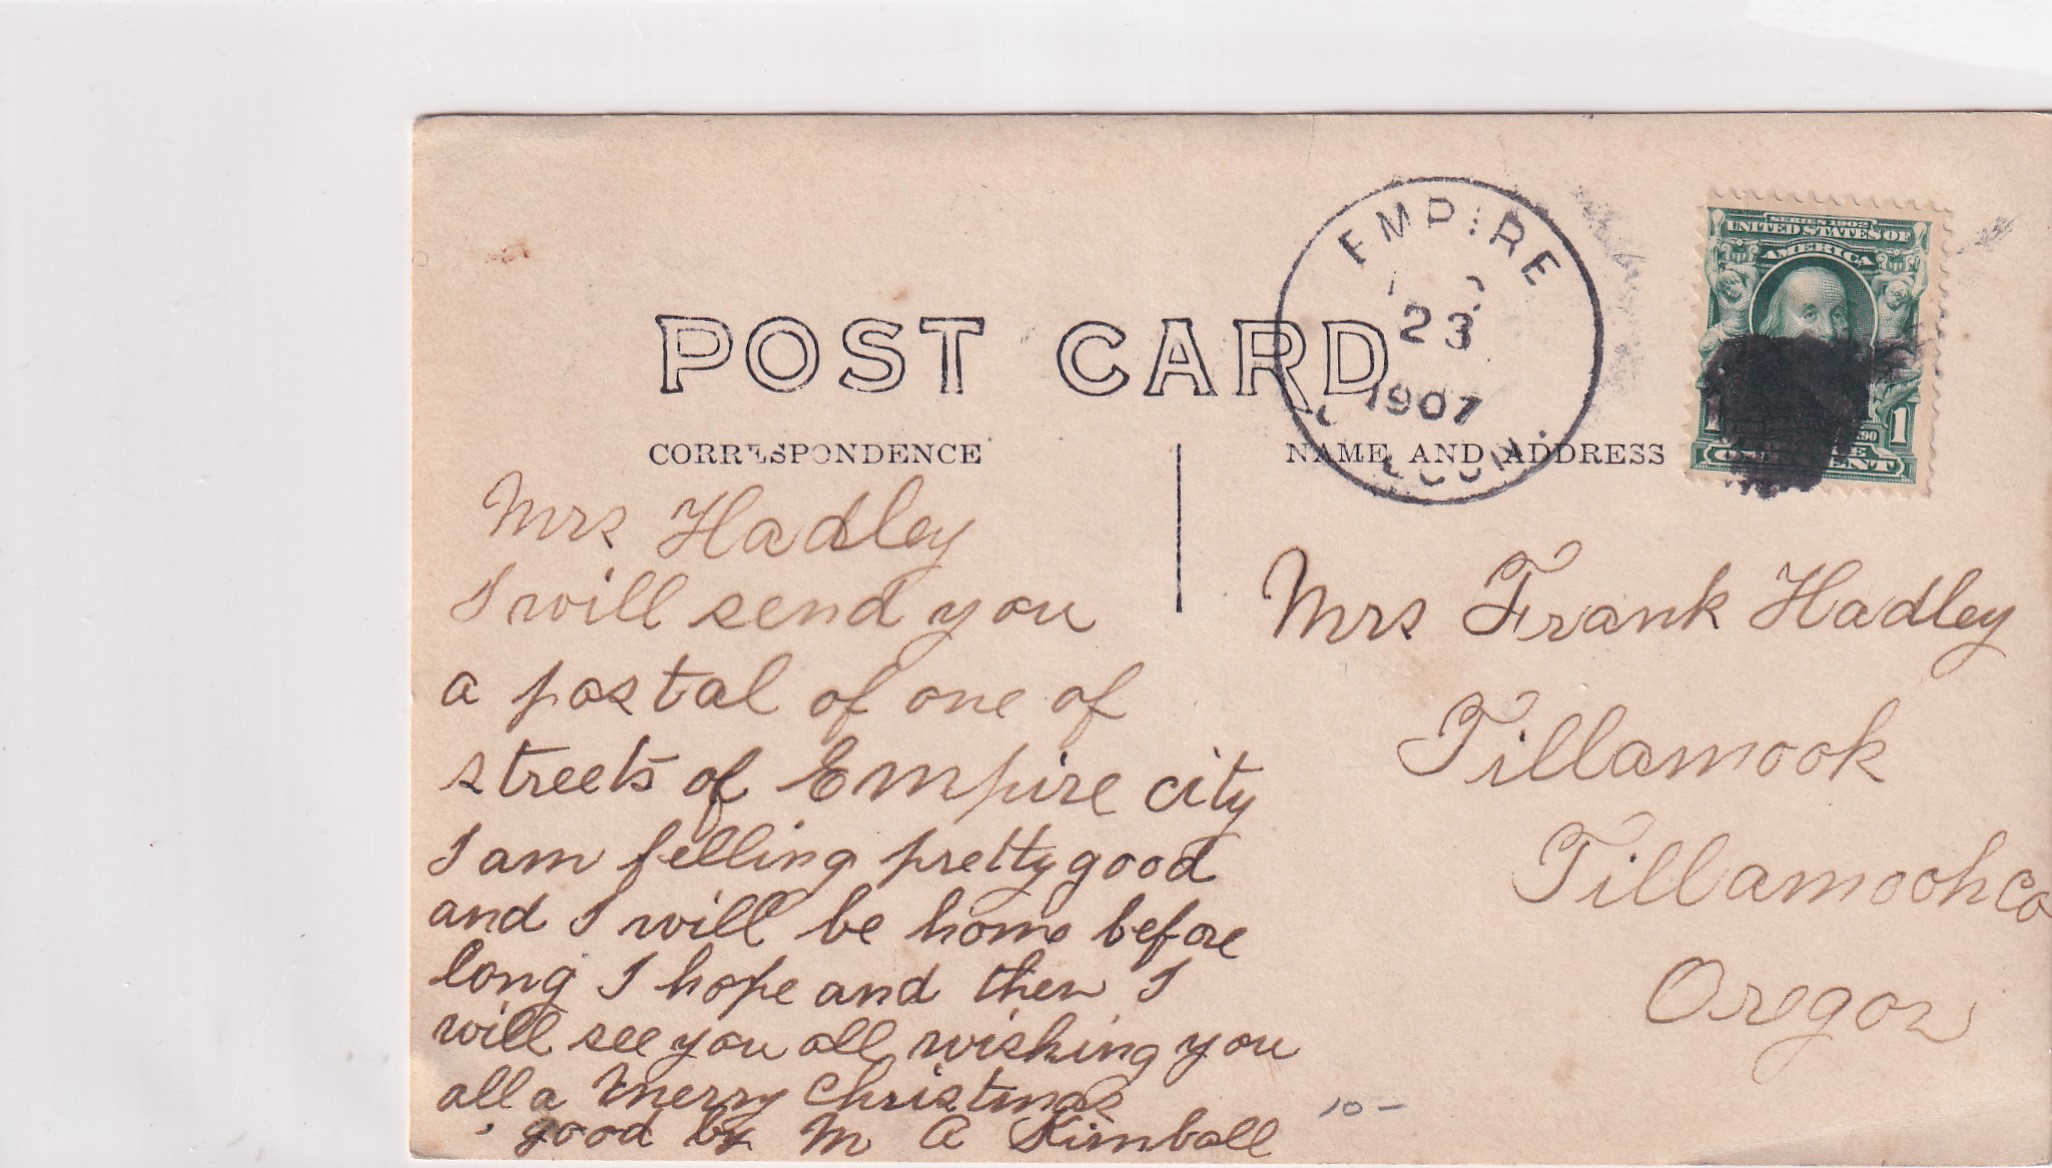 POST CARD
CORRESPONDENCE
NAME AND ADDRESS
EMPIRE
23
1907
SERIES 1902
UNITED STATES OF
AMERICA
1
Mrs Hadley
I will send you
a postal of one of
streets of Empire city
I am felling pretty good
and I will be home before
long I hope and then I
will see you all, wishing you
all a merry christmas
good by M A Kimball
Mrs Frank Hadley
Tillamook
Tillamook Co
Oregon
10-